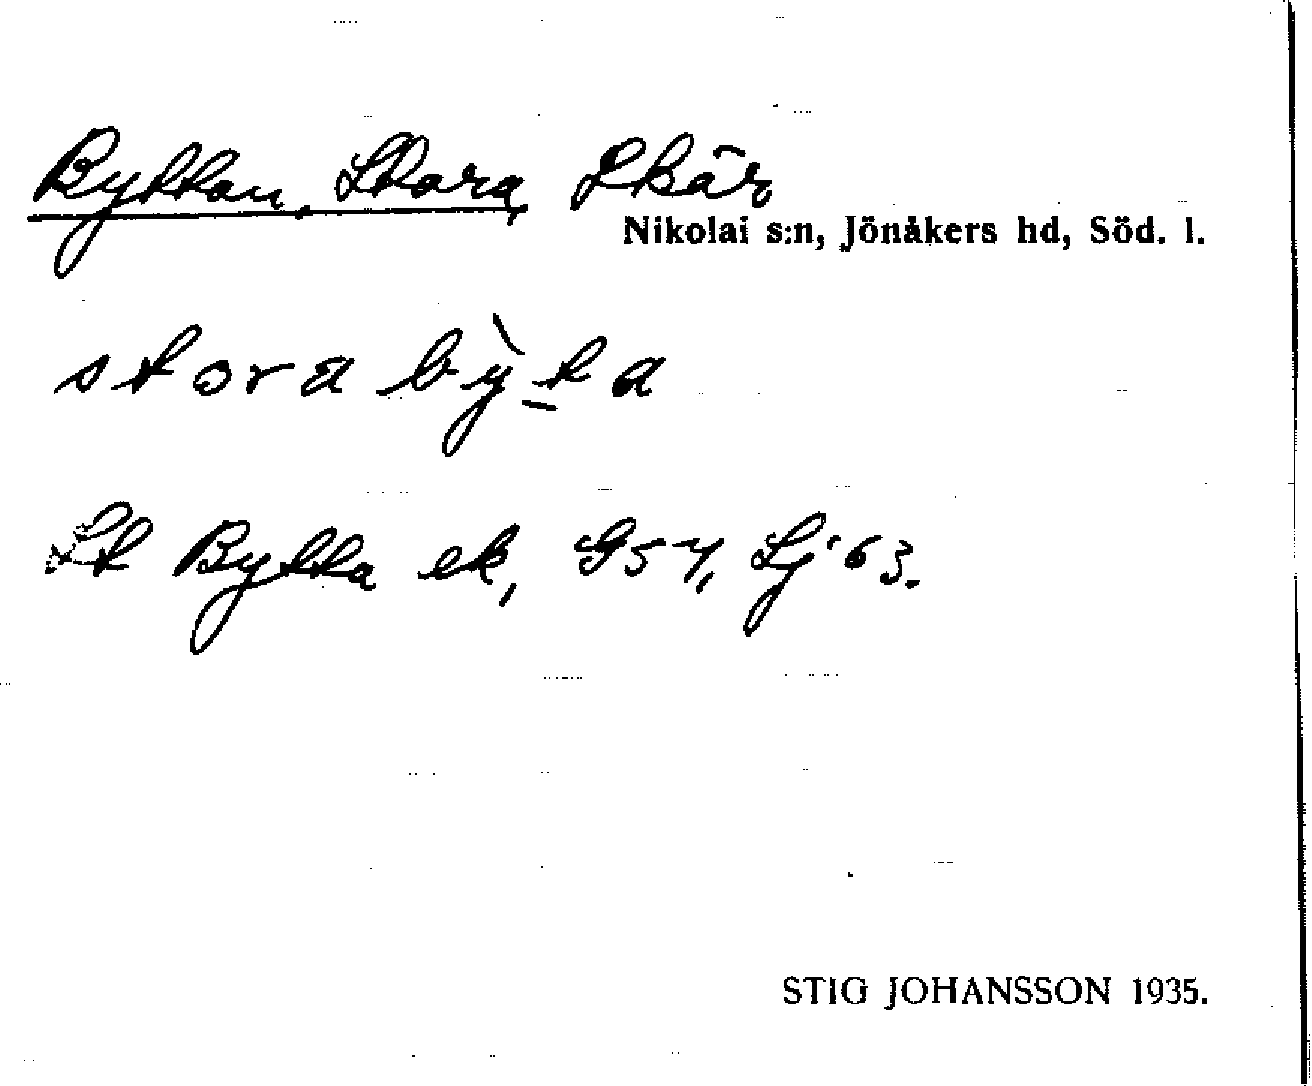 Byttan, Stora, Skär
Nikolai s:n, Jönåkers hd, Söd. l.
stora bỳṯa
St Bytta ek, G57, Lj 63.
STIG JOHANSSON 1935.